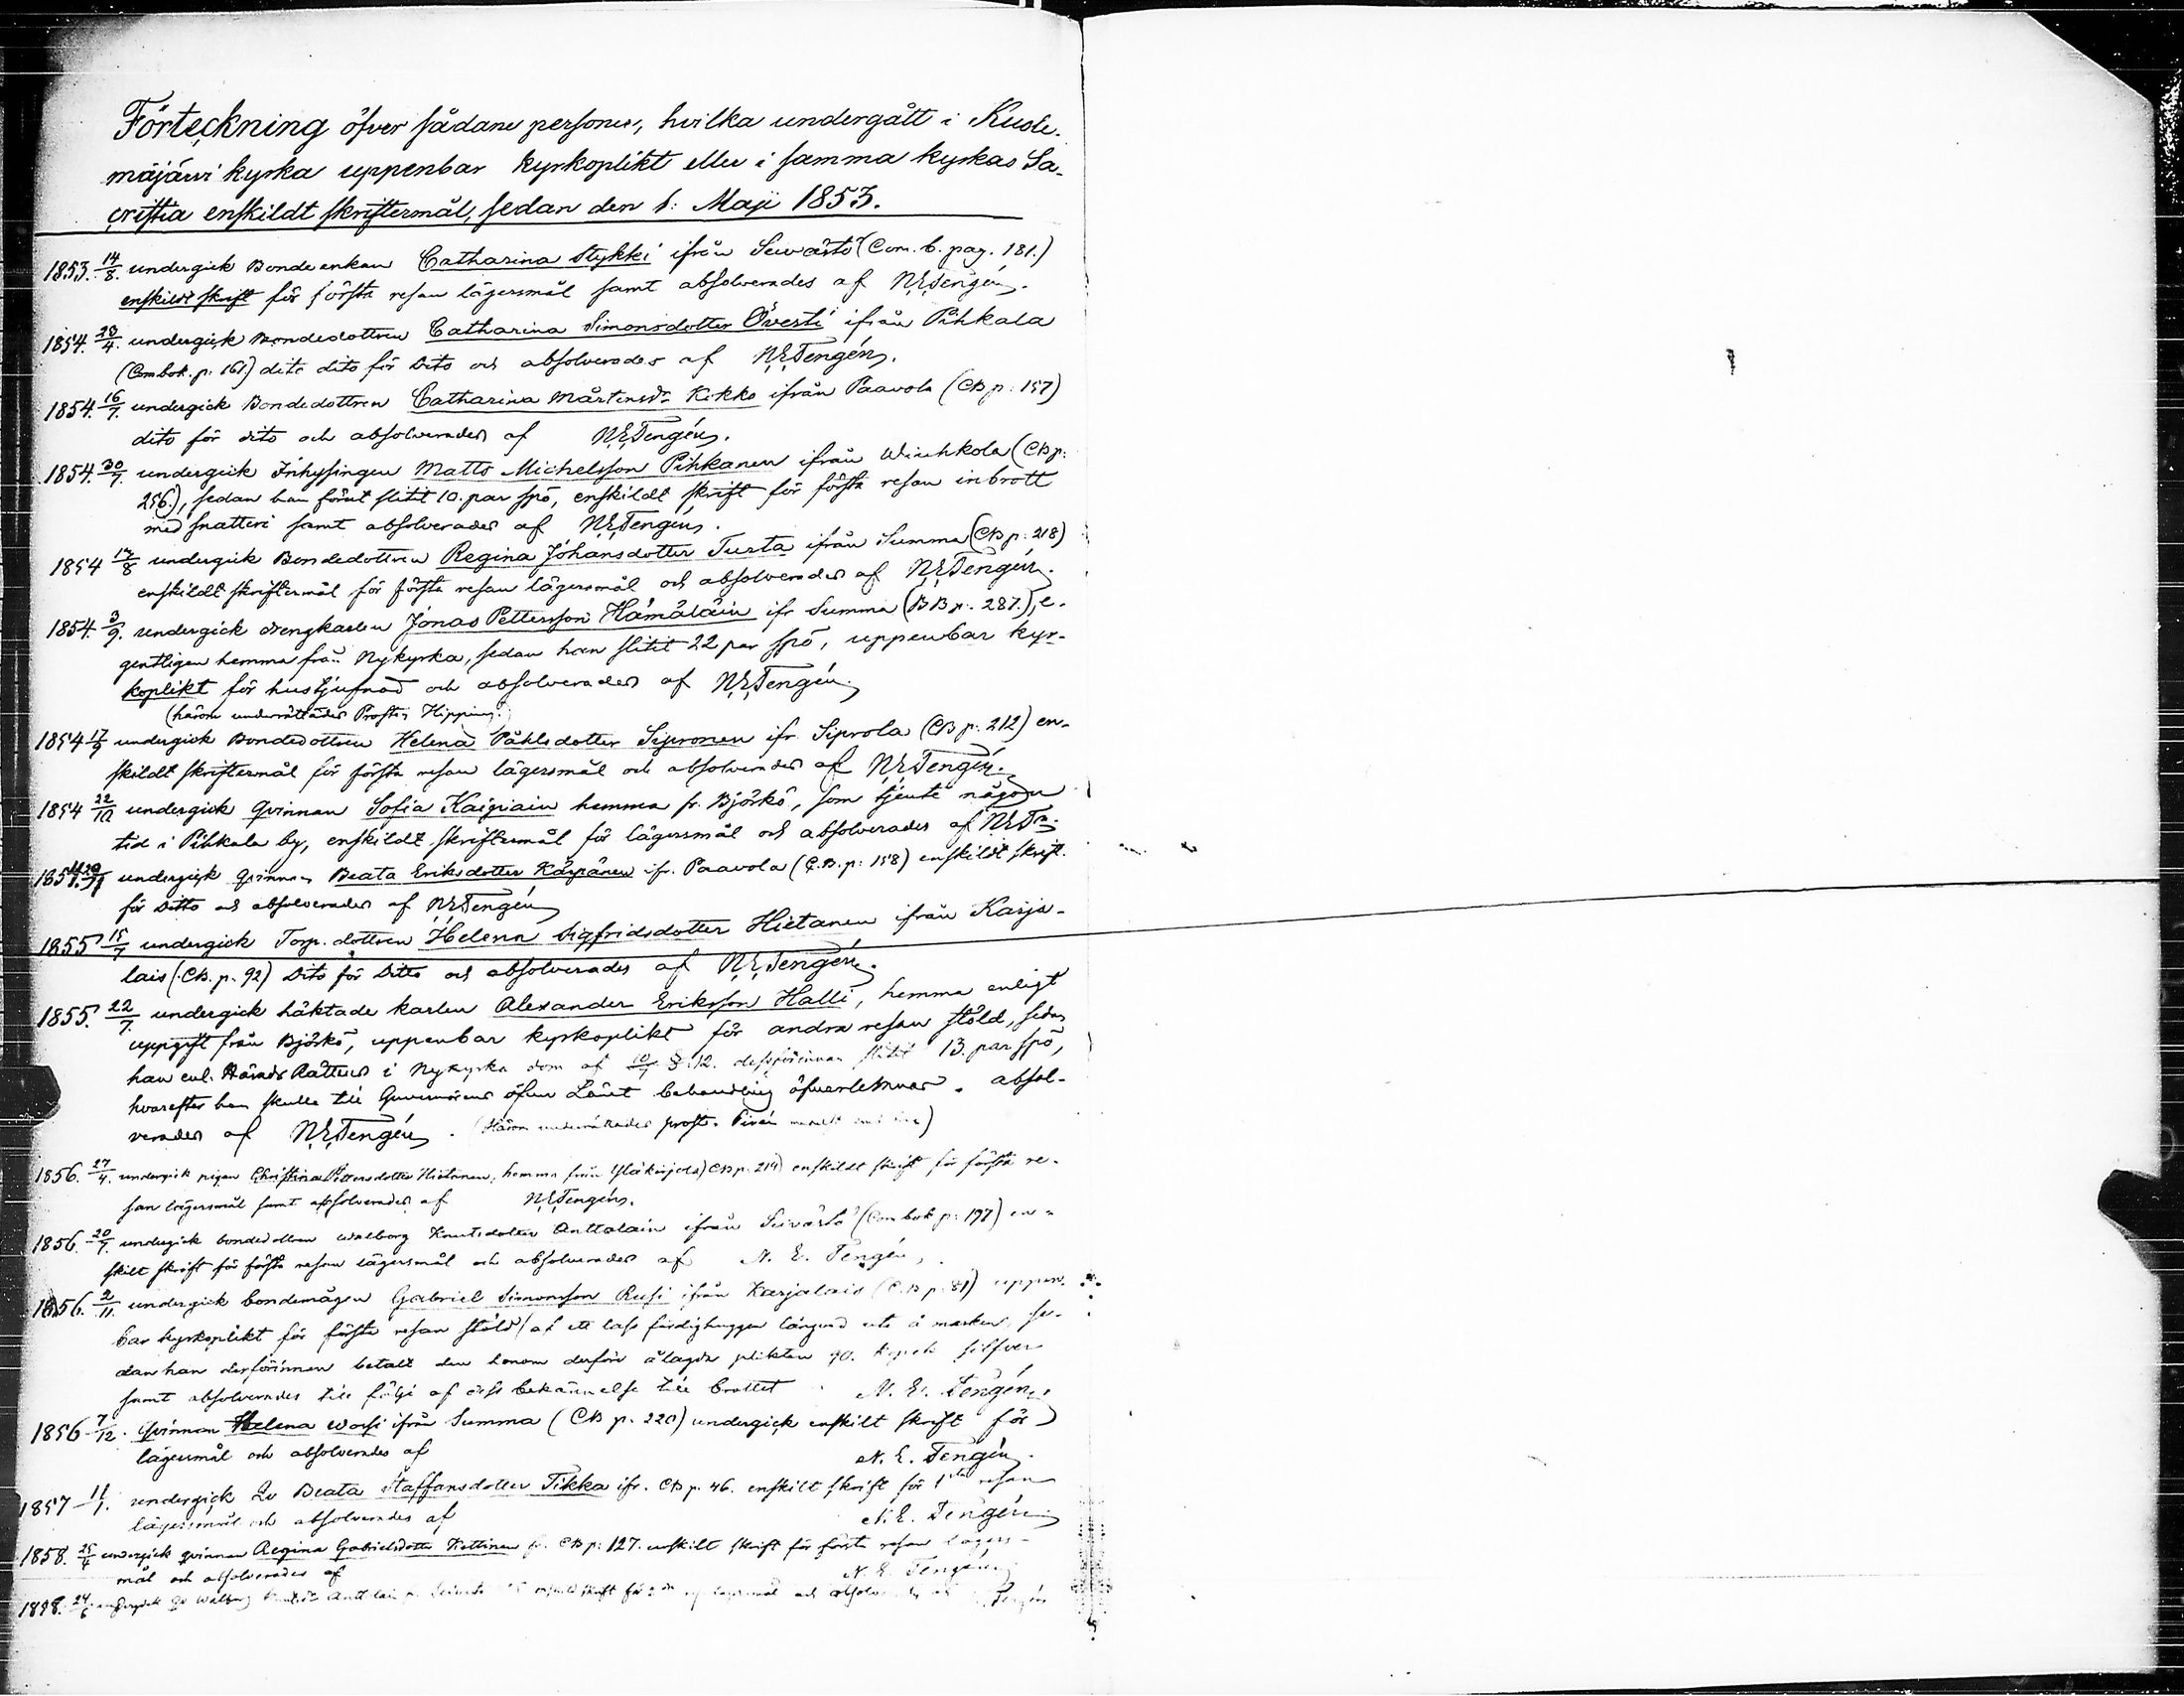 Förteckning öfver sådane personer, hvilka undergått i Kuole-
mäjärvi kyrka uppenbar kyrkoplikt eller i samma kyrkas Sa-
cristia enskildt skriftermål, sedan den 1: Maji 1853.
1853. 14/8. undergick Bonde enkan Catharina Stykki ifrån Seivästö (Com. b. pag. 181.)
enskildt skrift för första resan lägersmål samt absolverades af N.E.Tengén.
1854. 23/4. undergick Bondedottren Catharina Simonsdotter Övesti ifrån Pihkala
(Combok. p. 161) dito dito för Dito och absolverades af N.E.Tengén.
1854. 16/7. undergick Bondedottren Catharina Mårtensdr Kekko ifrån Paavola (CB p: 157)
dito för dito och absolverades af N.E.Tengén.
1854. 30/7. undergick Inhysingen Matts Michelsson Pihkanen ifrån (CB p:
256.), sedan han förut slitit 10. par spö, enskildt skrift för första resan inbrott
med snatteri samt absolverades af N.E.Tengén.
1854 13/8 undergick Bondedottren Regina Johansdotter Turta ifrån Summa (CB p: 218)
enskildt skriftermål för första resan lägersmål och absolverades af N.E.Tengén.
1854. 3/9. undergick drengkarlen Jonas Pettersson Hämäläin ifr Summa (BB p. 287.), e-
gentligen hemma från Nykyrka, sedan han slitit 22 par spö, uppenbar kyr-
koplikt för hustjufnad och absolverades af N.E.Tengén.
(härom underrättades Prosten Hipping.)
1854 17/9 undergick Bondedottren Helena Påhlsdotter Sipronen ifr. Siprola (CB p: 212) en-
skildt skriftermål för första resan lägersmål och absolverades af N.E.Tengén.
1854 22/10 undergick Qvinnan Sofia Kaipiain hemma fr. Björkö, som tjente någon
tid i Pihkala by, enskildt skriftermål för lägersmål och absolverades af N.E.Tn.
undergick qvinnan Beata Eriksdotter Kärpänen ifr. Paavola (C.B. p: 158) enskildt skrift.
för Ditto och absolverades af N.E.Tengén
1855 15/7 undergick Torp. dottren Helena Sigfridsdotter Hietanen ifrån Karja-
lais (CB. p. 92) Dito för Ditto och absolverades af N.E.Tengén.
1855. 22/7. undergick häktade karlen Alexander Eriksson Halli, hemma enligt
uppgift från Björkö, uppenbar kyrkoplikt för andra resan stöld, sedan
han enl. Härads Rättens i Nykyrka dom af dessförinnan slitit 13. par spö,
hvarefter han skulle till Guvernörens öfver Länet behandling öfverlemnas. absol-
verades af N.E.Tengén. (Härom underrättades prost.
1856. 27/4. undergick pigan Christina Pettersdotter Hietanen, hemma från (CB p. 214) enskildt skrift för första re-
san lägersmål samt absolverades af N.E.Tengén.
1856. 20/7. undergick bondedottren Walborg Knutsdotter Anttalain ifrån Seivästö (Com bok p: 197) en-
skilt skrift för första resan lägersmål och absolverades af N. E. Tengén.
1856. 2/11. undergick bondemågen Gabriel Simonsson Rusi ifrån Karjalais (C.B p. 81) uppen-
bar kyrkoplikt för första resan stöld (af ett lass färdighuggen långved ute å marken, se-
dan han derförinnan betalt den honom derföre ålagda plikten 90. kopek silfver
samt absolverades till följe af dess bekännelse till brottet N. E. Tengén.
1856 7/12. Qvinnan Helena Worsi ifrån Summa (CB p. 220) undergick enskilt skrift för
lägersmål och absolverades af N. E. Tengén.
1857 11/1. undergick Qv Beata Staffansdotter Tikka ifr. CB p. 46. enskilt skrift för 1sta resan
lägersmål och absolverades af N.E. Tengén
1858. 25/4 undergick qvinnan Regina Gabrielsdotter Kettinen fr. CB p: 127. enskilt skrift för första resan lägers-
mål och absolverades af N. E. Tengén
1858. 24/6 undergick Qv Walborg skrift för 2dra och absolverades af Tengén